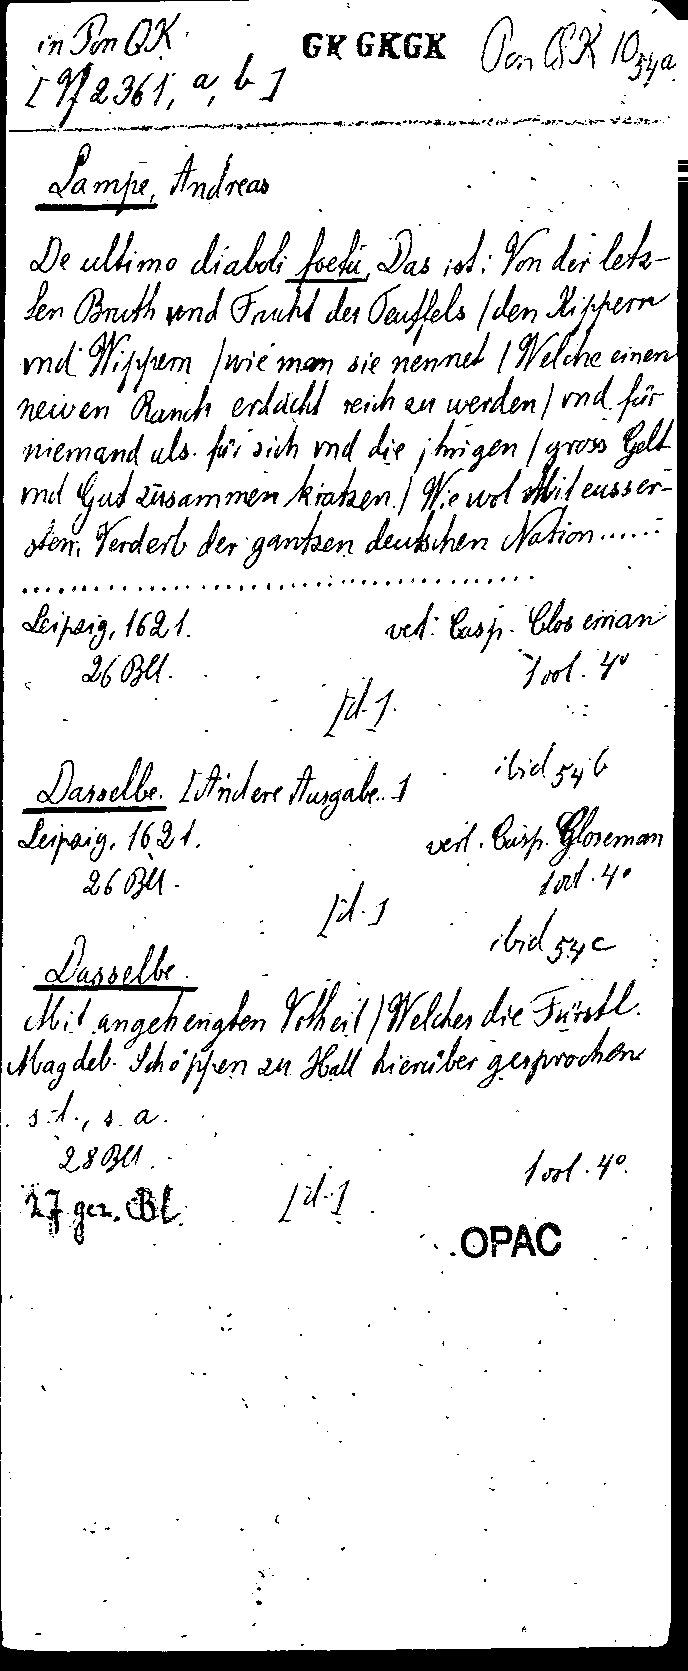 in Pon QK. GK GK GK Pon QK 10 54a
[Qf 2361, a, b]
Lampe, Andreas
De ultimo diaboli foetu, Das ist: Von der letz-
ten Bruth vnd Frucht des Teuffels / den Kippern
vnd Wippern / wie man sie nennet / Welche einen
neiwen Ranck erdacht reich zu werden / vnd für
niemand als für sich vnd die jhrigen / gross Gelt
vnd Gut zusammen kratzen / Wie wol Mit eusser-
sten Verderb der gantzen deutschen Nation......
Leipzig, 1621. verl. Casp. Closeman
26 Bll. 1 vol. 4°
[d.]
Dasselbe. [Andere Ausgabe..] ibid 54b
Leipzig, 1621. verl. Casp. Gloseman
26 Bll. 1 vol. 4°
[d.]
Dasselbe. ibid 54c
Mit angehengten Vrtheil / Welches die Fürstl.
Magdeb. Schöppen zu Hall hierüber gesprochen
s.l., s.a.
28 Bll. 1 vol. 4°.
27 gez. Bl. [d.]
OPAC